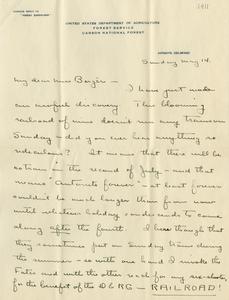 ADDRESS REPLY TO
"FOREST SUPERVISOR"
1911
UNITED STATES DEPARTMENT OF AGRICULTURE
FOREST SERVICE
CARSON NATIONAL FOREST
ANTONITO, COLORADO
Sunday May 14.
My dear Miss Bergere —
I have just made
an awful discovery. This blooming
railroad of mine doesn't run any trains on
Sunday — did you ever hear anything so
ridiculous? It means that there will be
no train on the second of July — and that
means "Antonito forever" — at least forever
couldn't be much longer than from now
until whatever holiday condescends to come
along after the fourth. I hear though that
they sometimes put on Sunday trains during
the summer — so with one hand I invoke the
Fates and with the other reach for my six-shooter,
for the benefit of the D & RG — RAILROAD!